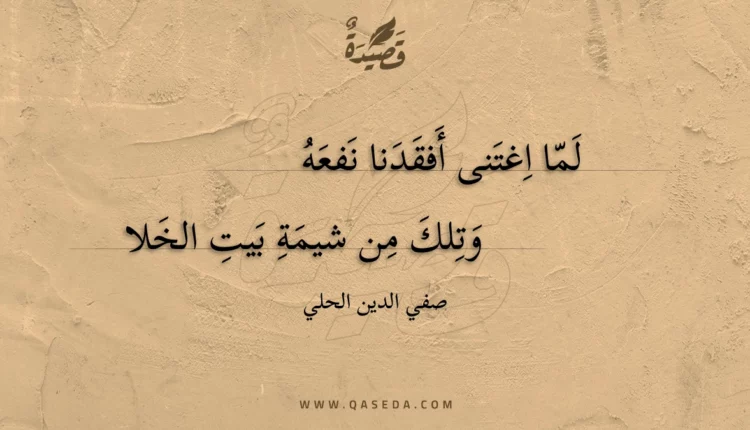 قَصِيدَةٌ
لَمّا اِغتَنى أَفقَدَنا نَفعَهُ
وَتِلكَ مِن شيمَةِ بَيتِ الخَلا
صفي الدين الحلي
WWW.QASEDA.COM